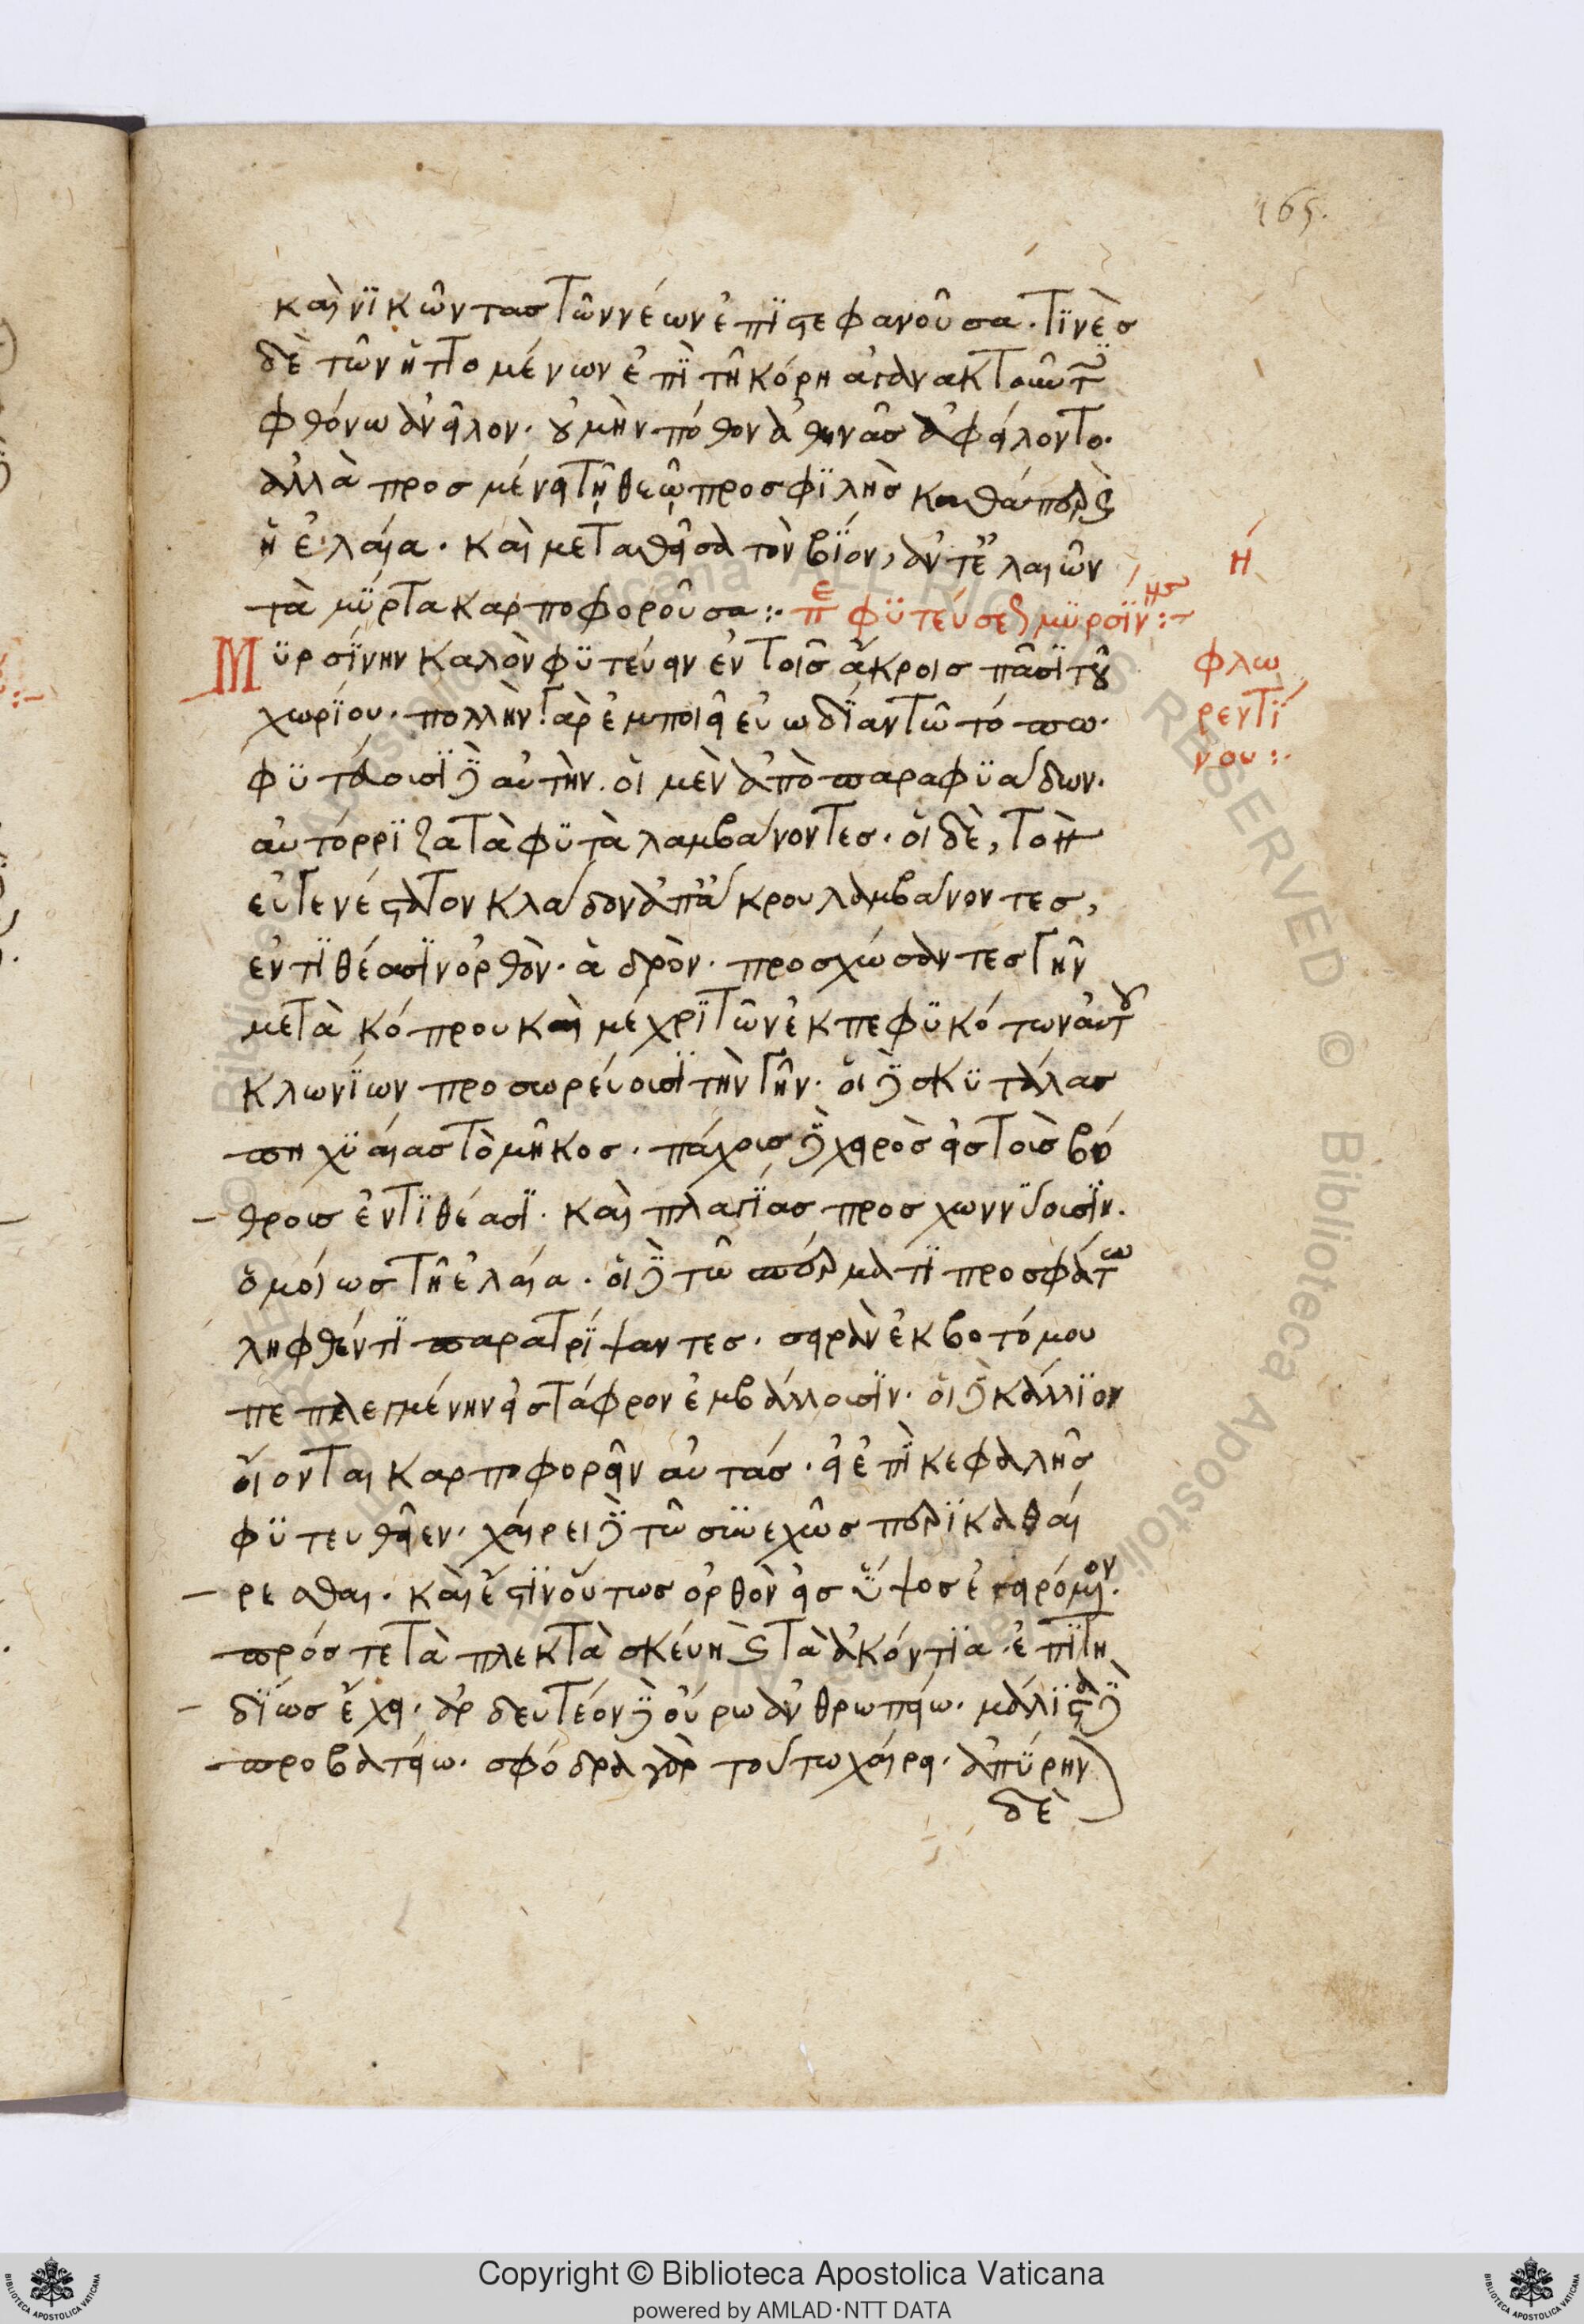 165.
καὶ νϊκῶντας τῶν νέων ἐπϊστεφανοῦσα. τϊνὲς
δὲ τῶν ἡττομένων ἐπὶ τῆ κόρη ἀγανακτοῦντες
φθόνω ἀνεῖλον. οὐ μὴν πόθον ἀθηνᾶς ἀφείλοντο.
ἀλλὰ προσμένει τῇ θεῷ προσφϊλὴς καθάπερ καὶ
ἡ ἐλαία. καὶ μεταθεῖσα τὸν βϊόν, ἀντ' ἐλαιῶν
τὰ μΰρτα καρποφοροῦσα :· πε φϋτεύσεως μϋρσΐνης :~
Μϋρσΐνην καλὸν φϋτεύειν ἐν τοῖς ἄκροις πᾶσϊ τοῦ
χωρΐου. πολλὴν γὰρ ἐμποιεῖ εὐωδΐαν τῶ τόπω.
φϋτεύουσϊ δὲ αὐτὴν. οἱ μὲν ἀπὸ παραφϋάδων.
αὐτόρρϊζα τὰ φϋτὰ λαμβάνοντες. οἱ δὲ, τὸν
εὐγενέστατον κλάδον ἀπ' ἄκρου λαμβάνοντες,
ἐντϊθέασϊν ὀρθὸν. ἁδρὸν. προσχώσαντες γῆν
μετὰ κόπρου καὶ μέχρϊ τῶν ἐκπεφϋκότων αὐτοῦ
κλωνΐων προσωρεύουσϊ τὴν γῆν. οἱ δὲ σκϋτάλας
πηχϋαίας τὸ μῆκος. πάχους δὲ χειρὸς εἰς τοὺς βό
θρους ἐντϊθέασϊ. καὶ πλαγϊας προσχωννΰουσϊν.
ὁμοίως τῆ ἐλαία. οἱ δὲ τῶ σπέρματϊ προσφάτω
ληφθέντϊ παρατρΐψαντες. σειρὰν ἐκ βοτόμου
πεπλεγμένην εἰς τάφρον ἐμβάλλουσϊν. οἱ δὲ κάλλϊον
οἴονται καρποφορεῖν αὐτάς. εἰ ἐπὶ κεφαλῆς
φϋτευθεῖεν. χαίρει δὲ τῶ σϋνεχῶς περϊκαθαί
ρεσθαι. καὶ ἔστϊν οὕτως ὀρθὸν εἰς ὕψος ἐγειρόμενον.
πρός τε τὰ πλεκτὰ σκεύη καὶ τὰ ἀκόντϊα. ἐπϊτη
δΐως ἔχει. ἀρδευτέον δὲ οὔρω ἀνθρωπείω. μάλϊστα δὲ
προβατείω. σφόδρα γὰρ τούτω χαίρει. ἀπΰρην
δὲ
ἡ
φλω
ρεντΐ
νου :·
Copyright © Biblioteca Apostolica Vaticana
powered by AMLAD·NTT DATA